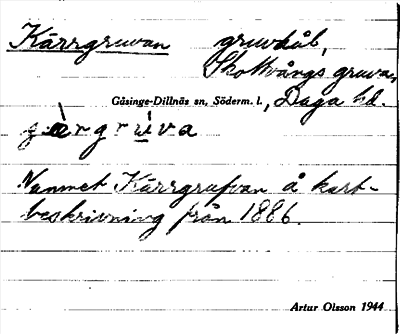 Kärrgruvan gruvhål,
Skottvångs gruvan,
Gåsinge-Dillnäs sn, Söderm. l., Daga hd.
Namnet Kärrgrufvan å kart-
beskrivning från 1886.
Artur Olsson 1944